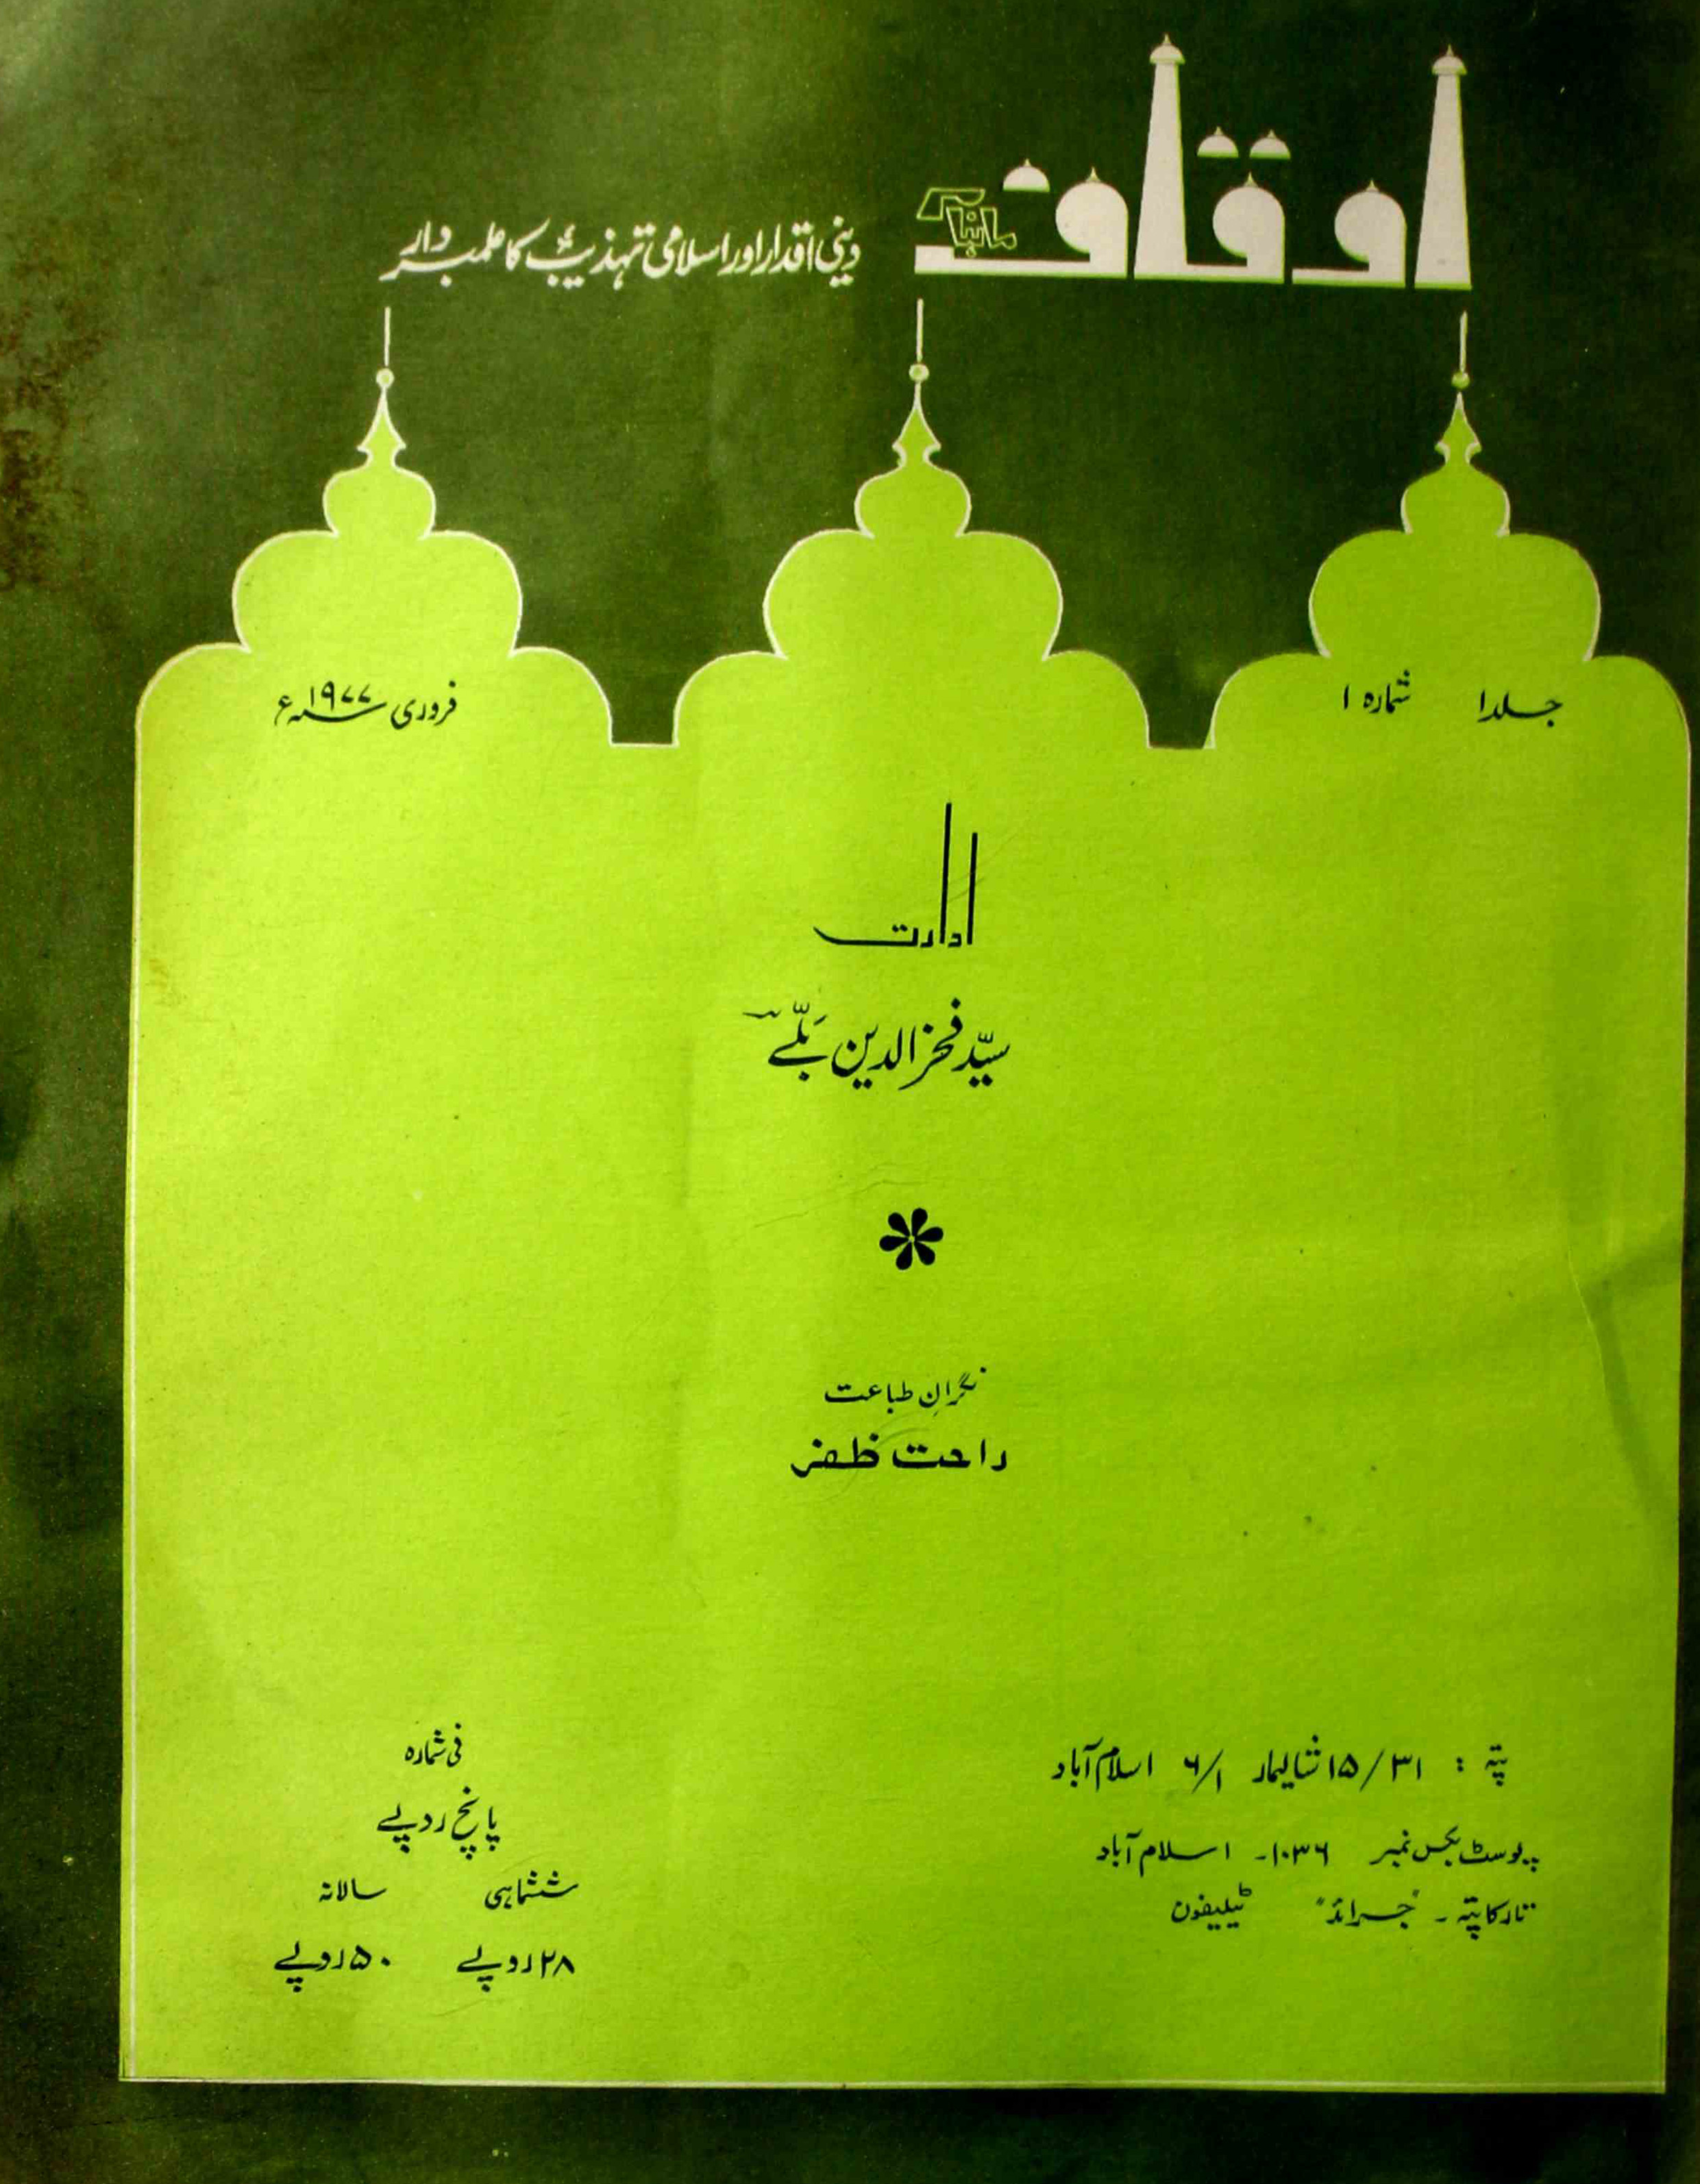 ماہنامہ اوقاف
دینی اقدار اور اسلامی تہذیب کا علمبردار
جلد ۱ شمارہ ۱
فروری ۱۹۷۷ء
ادارت
سیّد فخرالدین بَلّے
نگرانِ طباعت
راحت ظفر
پتہ : ۱۵/۳۱ شالیمار ۶/۱ اسلام آباد
پوسٹ بکس نمبر ۱۰۳۶۔ اسلام آباد
تار کا پتہ ۔ "جرائد" ٹیلیفون
فی شمارہ
پانچ روپے
ششماہی سالانہ
۲۸ روپے ۵۰ روپے